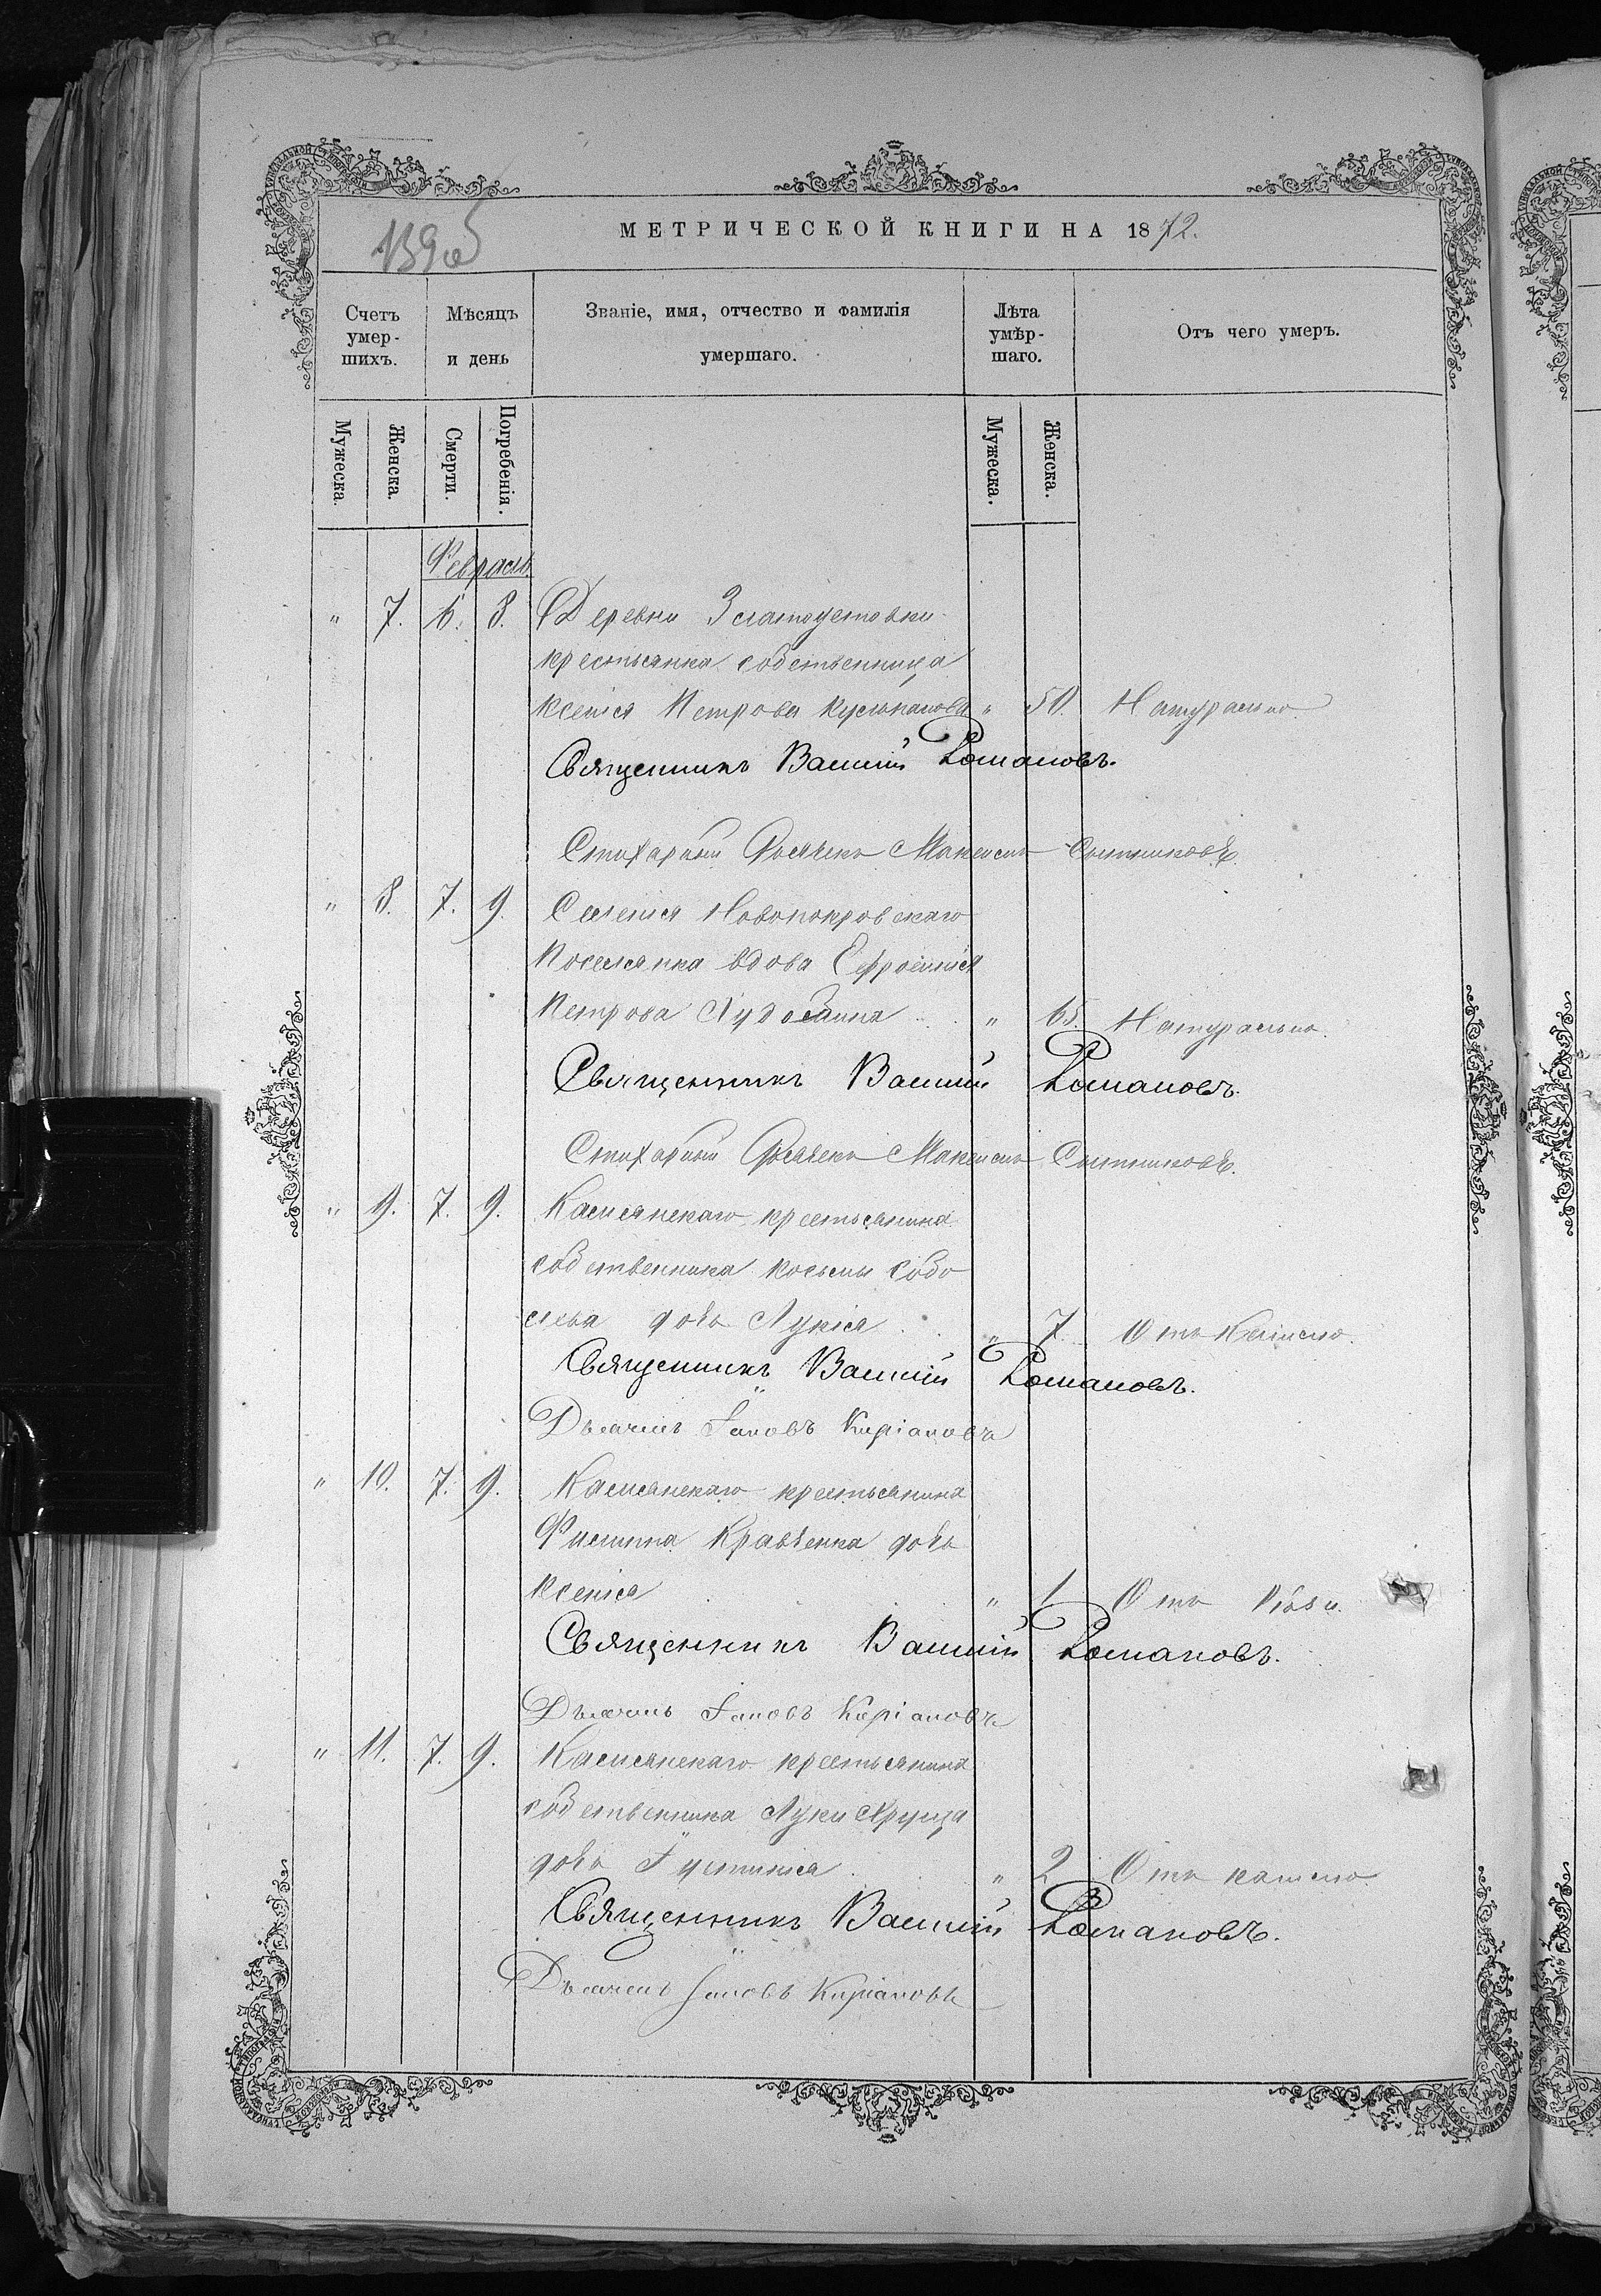 139об
МЕТРИЧЕСКОЙ КНИГИ НА 1872.
Счетъ умер-шихъ.
Мѣсяцъ и день
Званіе, имя, отчество и фамилія умершаго.
Лѣта умѣр-шаго.
Отъ чего умеръ.
Мужеска. Женска. Смерти. Погребенія. Мужеска. Женска.
Февраль
" 7. 6. 8. Деревни Златоустовки
крестьянка собственница
Ксенія Петрова " 50. Натурально.
Священникъ Василій Романовъ.
Стихарный Дьячекъ Максимъ Сытниковъ.
" 8. 7. 9. Селенія Новопокровскаго
Поселянка вдова Ефросинія
Петрова " 65. Натурально.
Священникъ Василій Романовъ.
Стихарный Дьячекъ Максимъ Сытниковъ.
" 9. 7. 9. Камянскаго крестьянина
собственника Косьмы Собо
лева дочь Лукія " 7. Отъ Кашлю.
Священникъ Василій Романовъ.
Дьячекъ Іаковъ Киріановъ
" 10. 7. 9. Камянскаго крестьянина
Филиппа Кравченка дочь
Ксенія " 1 Отъ
Священникъ Василій Романовъ.
Дьячекъ Іаковъ Киріановъ
" 11. 7. 9. Камянскаго крестьянина
собственника Луки
дочь Іустинія " 2 Отъ кашлю
Священникъ Василій Романовъ.
Дьячекъ Іаковъ Киріановъ